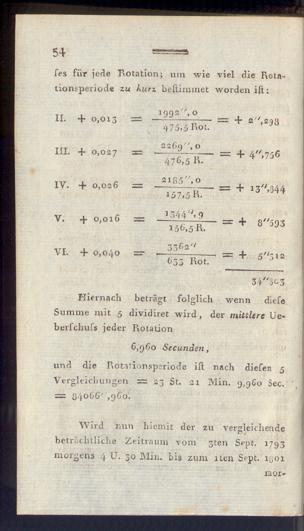 54
ſes für jede Rotation; um wie viel die Rota-
tionsperiode zu kurz beſtimmet worden iſt:
II. + 0,013 = 1992″,0 / 475,5 Rot. = + 2″,298
III. + 0,027 = 2269″,0 / 476,5 R. = + 4″,756
IV. + 0,026 = 2185″,0 / 157,5 R. = + 13″,844
V. + 0,016 = 1344″,9 / 156,5 R. = + 8″593
VI. + 0,040 = 3362″ / 633 Rot. = + 5″312
34″803
Hiernach beträgt folglich wenn dieſe
Summe mit 5 dividiret wird, der mittlere Ue-
berſchuſs jeder Rotation
6,960 Secunden,
und die Rotationsperiode iſt nach dieſen 5
Vergleichungen = 23 St. 21 Min. 9,960 Sec.
= 84066″,960.
Wird nun hiemit der zu vergleichende
beträchtliche Zeitraum vom 3ten Sept. 1793
morgens 4 U. 30 Min. bis zum 11ten Sept. 1801
mor-